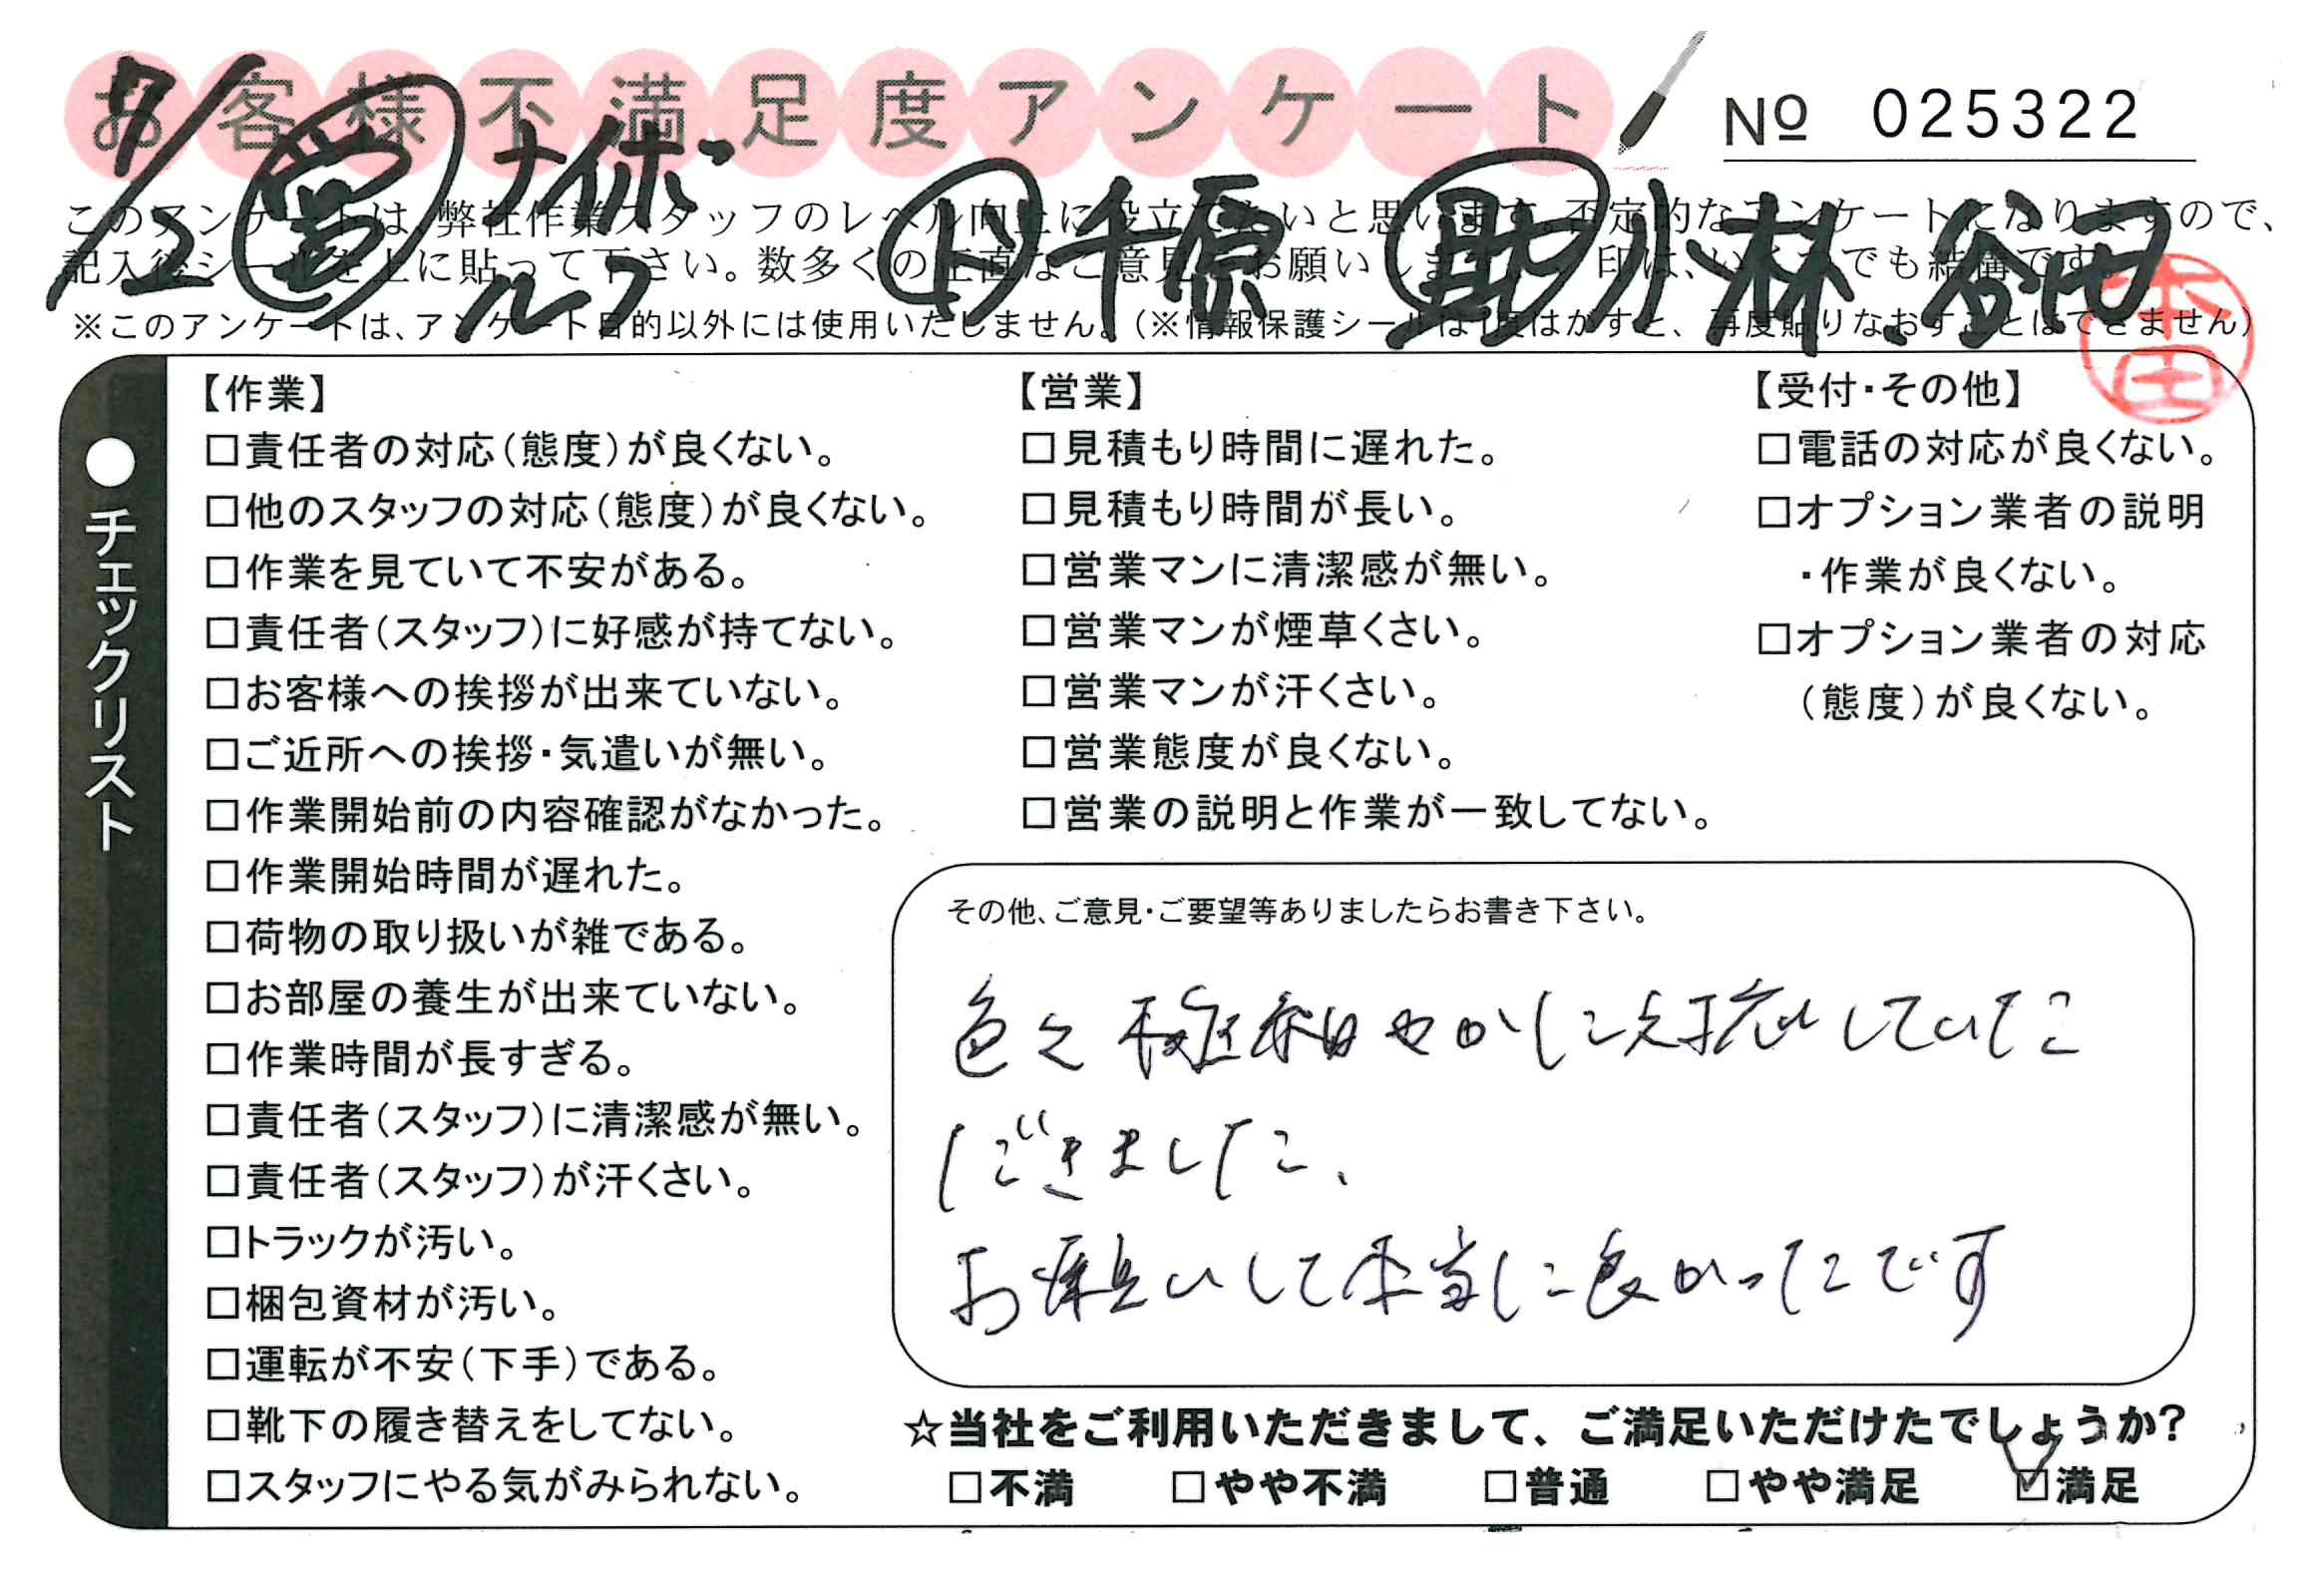 お客様不満足度アンケート
№ 025322
7/2 営 ナイトボ ド 千原 助 小林、谷田
ルフ
このアンケートは、弊社作業スタッフのレベル向上に役立てたいと思います。否定的なアンケートになりますので、
記入後シールを上に貼って下さい。数多くの正直なご意見をお願いします。 印は、いくつでも結構です。
※このアンケートは、アンケート目的以外には使用いたしません。(※情報保護シールは1度はがすと、再度貼りなおすことはできません)
本田
●チェックリスト
【作業】
□責任者の対応(態度)が良くない。
□他のスタッフの対応(態度)が良くない。
□作業を見ていて不安がある。
□責任者(スタッフ)に好感が持てない。
□お客様への挨拶が出来ていない。
□ご近所への挨拶・気遣いが無い。
□作業開始前の内容確認がなかった。
□作業開始時間が遅れた。
□荷物の取り扱いが雑である。
□お部屋の養生が出来ていない。
□作業時間が長すぎる。
□責任者(スタッフ)に清潔感が無い。
□責任者(スタッフ)が汗くさい。
□トラックが汚い。
□梱包資材が汚い。
□運転が不安(下手)である。
□靴下の履き替えをしてない。
□スタッフにやる気がみられない。
【営業】
□見積もり時間に遅れた。
□見積もり時間が長い。
□営業マンに清潔感が無い。
□営業マンが煙草くさい。
□営業マンが汗くさい。
□営業態度が良くない。
□営業の説明と作業が一致してない。
【受付・その他】
□電話の対応が良くない。
□オプション業者の説明
・作業が良くない。
□オプション業者の対応
(態度)が良くない。
その他、ご意見・ご要望等ありましたらお書き下さい。
色々 やかに対応していた
だきました、
お願いして本当に良かったです
☆当社をご利用いただきまして、ご満足いただけたでしょうか?
□不満 □やや不満 □普通 □やや満足 ☑満足